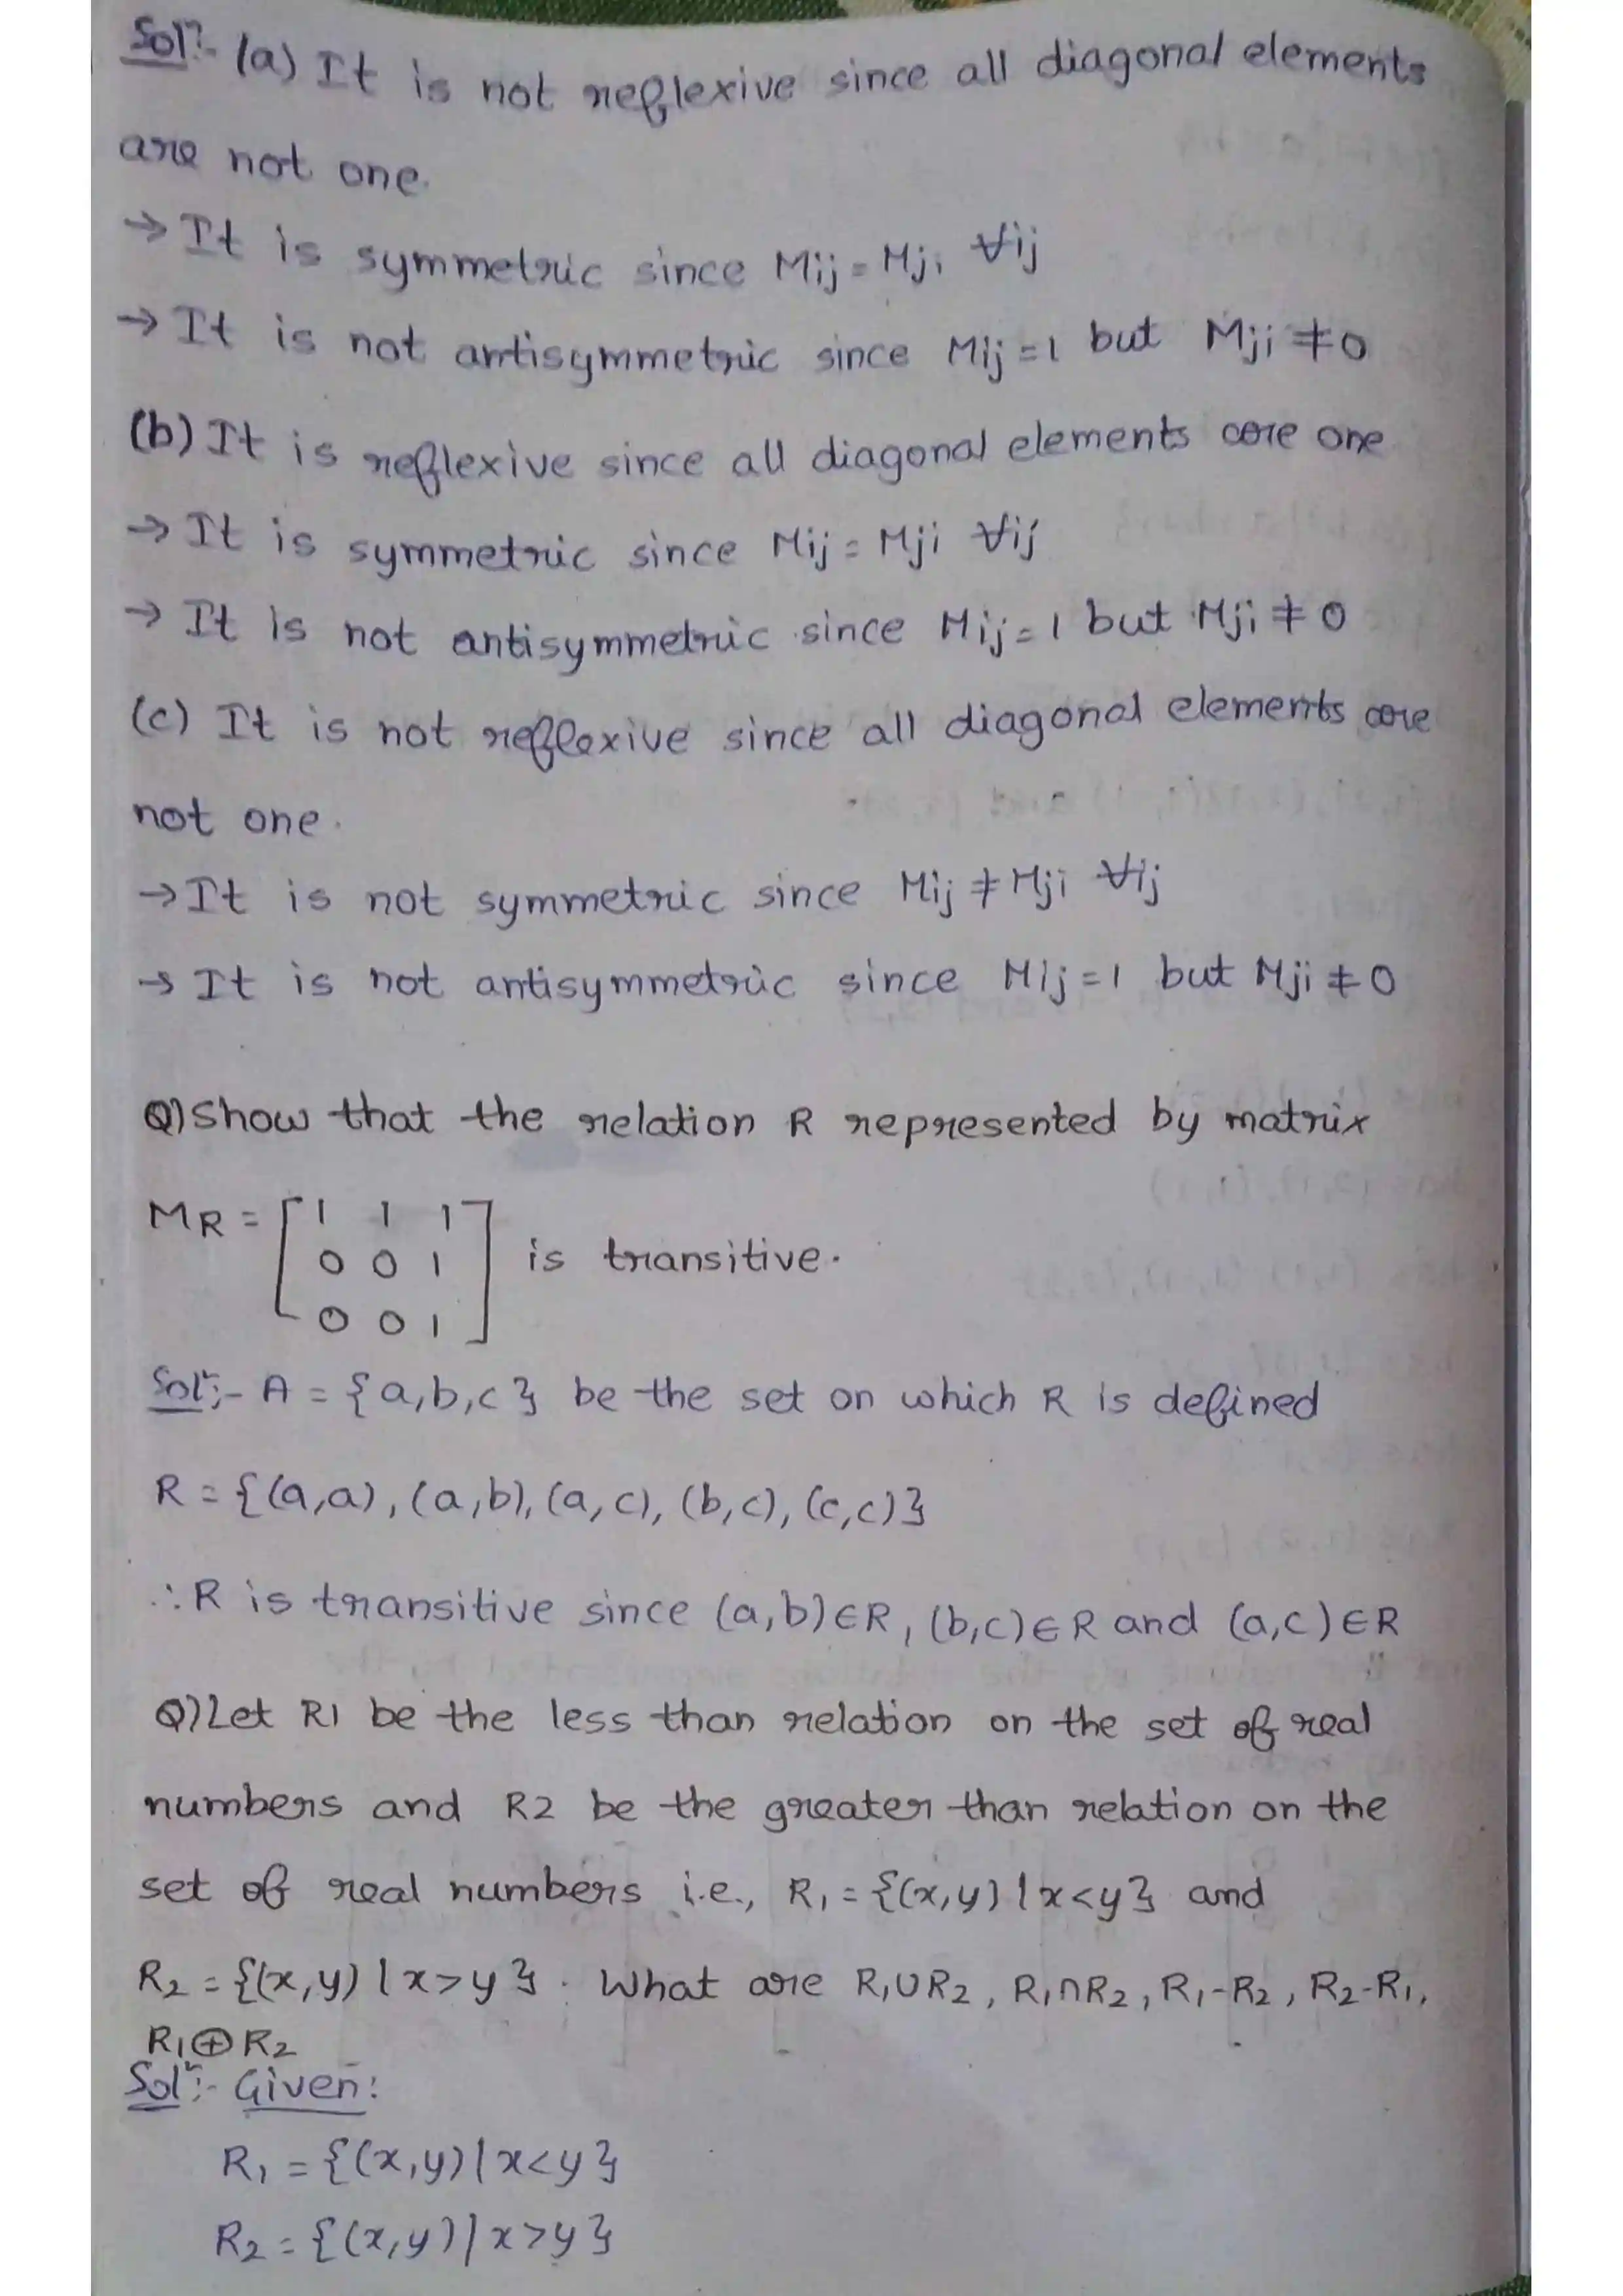 Solⁿ:- (a) It is not reflexive since all diagonal elements
are not one.
→ It is symmetric since Mij = Mji ∀ij
→ It is not antisymmetric since Mij = 1 but Mji ≠ 0
(b) It is reflexive since all diagonal elements are one
→ It is symmetric since Mij = Mji ∀ij
→ It is not antisymmetric since Mij = 1 but Mji ≠ 0
(c) It is not reflexive since all diagonal elements are
not one.
→ It is not symmetric since Mij ≠ Mji ∀ij
→ It is not antisymmetric since Mij = 1 but Mji ≠ 0
Q) Show that the relation R represented by matrix
MR = [ 1 1 1
0 0 1 is transitive.
0 0 1 ]
Solⁿ:- A = {a,b,c} be the set on which R is defined
R = {(a,a), (a,b), (a,c), (b,c), (c,c)}
∴ R is transitive since (a,b)∈R, (b,c)∈R and (a,c)∈R
Q) Let R1 be the less than relation on the set of real
numbers and R2 be the greater than relation on the
set of real numbers i.e., R₁ = {(x,y) | x<y} and
R₂ = {(x,y) | x>y}. What are R₁∪R₂, R₁∩R₂, R₁-R₂, R₂-R₁,
R₁⊕R₂
Solⁿ:- Given:
R₁ = {(x,y) | x<y}
R₂ = {(x,y) | x>y}